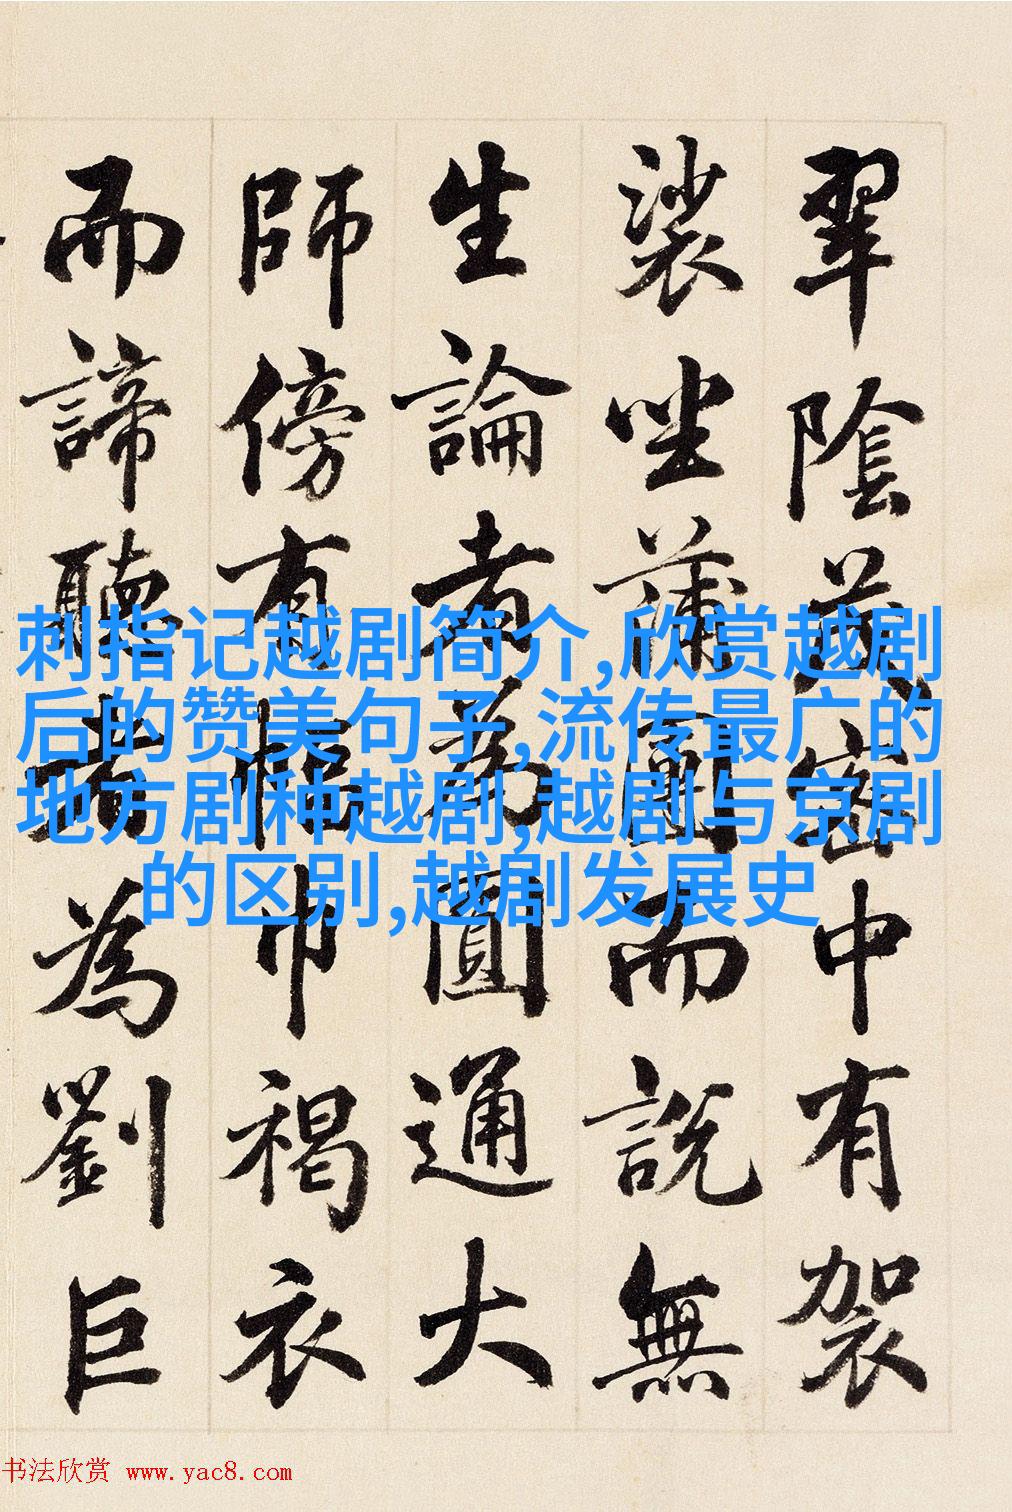 翠陰茂密中有袈
裟坐蒲團而說無
生論者為圓通大
師傍有幅巾褐衣
而諦聽者為劉巨
刺指记越剧简介,欣赏越剧
后的赞美句子,流传最广的
地方剧种越剧,越剧与京剧
的区别,越剧发展史
书法欣赏 www.yac8.com